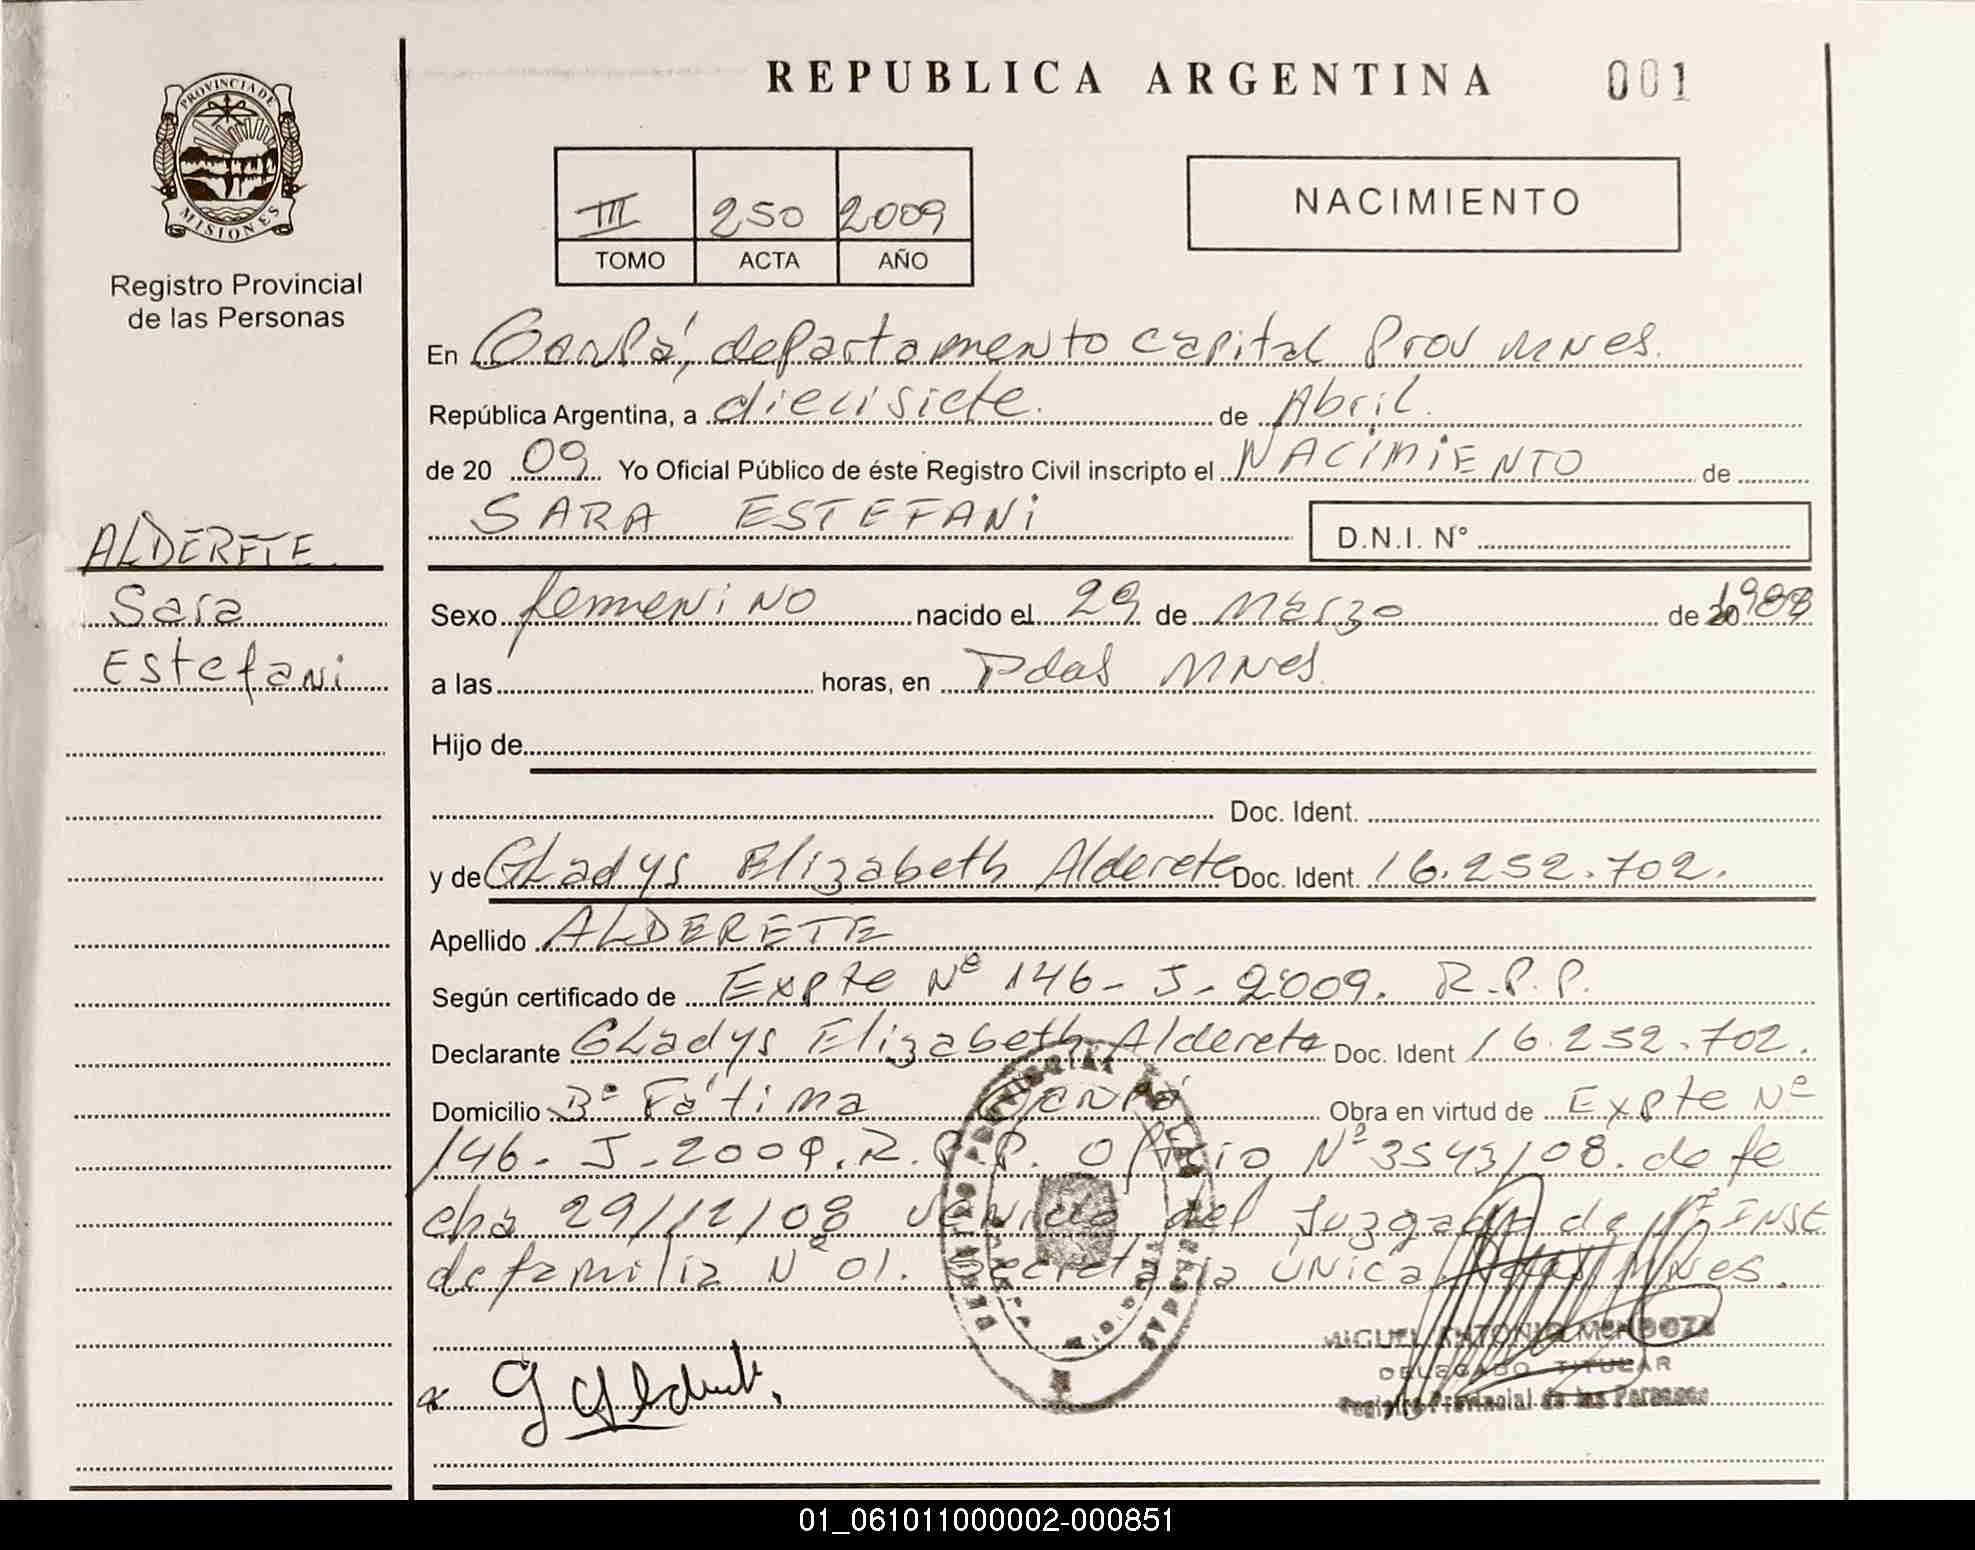 REPUBLICA ARGENTINA 001
PROVINCIA DE
MISIONES
Registro Provincial
de las Personas
III 250 2009
TOMO ACTA AÑO
NACIMIENTO
En Garupá, departamento capital Prov Mnes.
República Argentina, a diecisiete. de Abril.
de 20 09 Yo Oficial Público de éste Registro Civil inscripto el NACIMIENTO de
SARA ESTEFANI
D.N.I. N°
ALDERETE
Sara
Estefani
Sexo femenino nacido el 29 de Marzo de
a las horas, en Pdas Mnes.
Hijo de
Doc. Ident.
y de Gladys Elizabeth Alderete Doc. Ident. 16.252.702.
Apellido ALDERETE
Según certificado de Expte Nº 146- J- 2009. R.P.P.
Declarante Gladys Elizabeth Alderete Doc. Ident 16.252.702.
Domicilio Bº Fátima Garupá Obra en virtud de Expte Nº
146- J-2009. R.P.P. Oficio Nº 3543/08. de fe
cha 29/12/08 venido del Juzgado de 1º INST
de familia Nº 01. Secretaria UNICA Mnes.
MIGUEL ANTONIO MENDOZA
DELEGADO TITULAR
Registro Provincial de las Personas
01_061011000002-000851